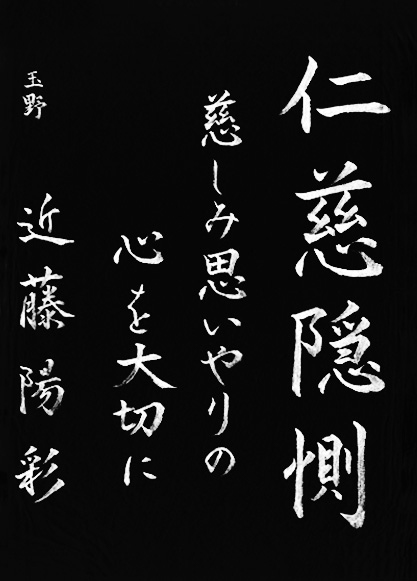 仁慈隠惻
慈しみ思いやりの
心を大切に
玉野
近藤陽彩